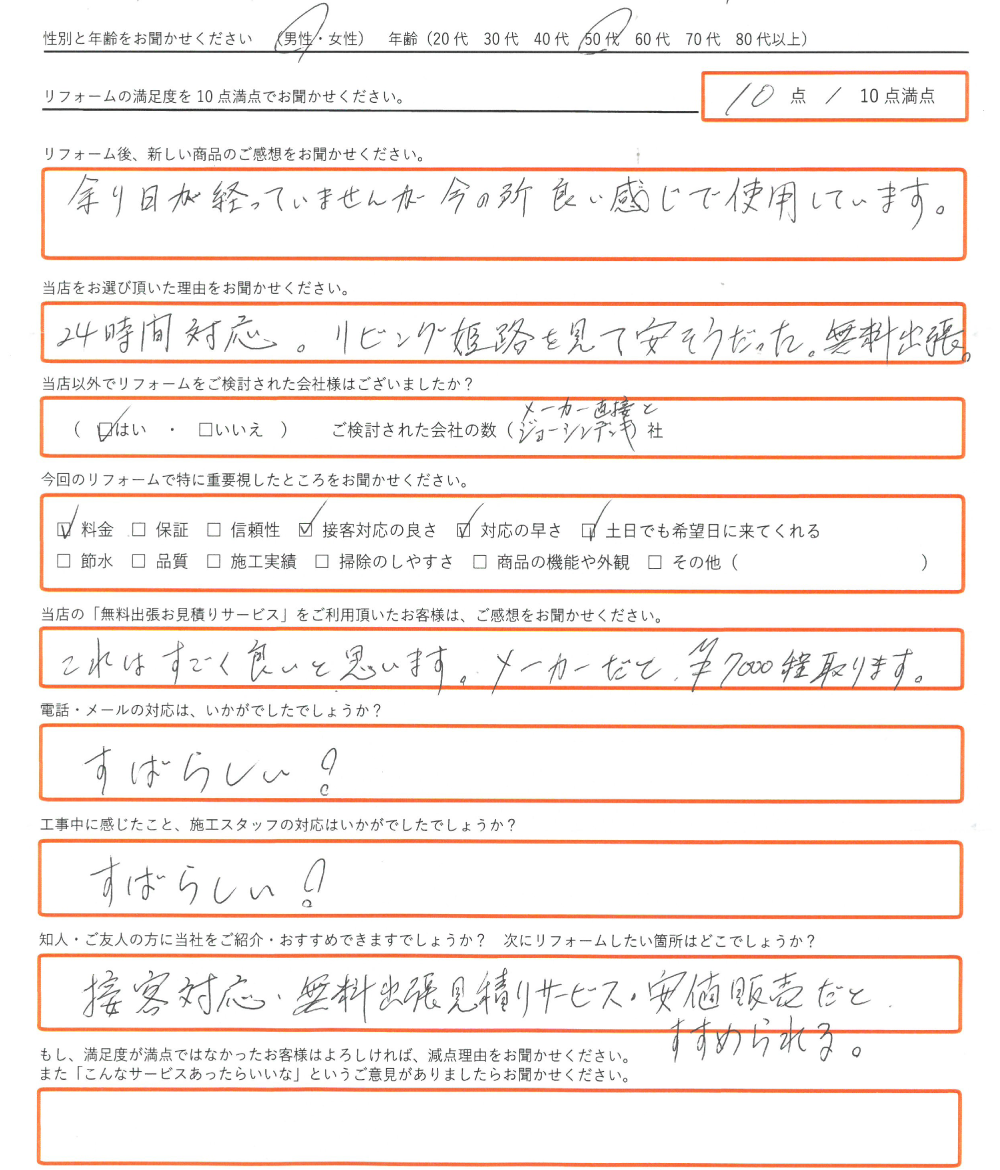 性別と年齢をお聞かせください （男性・女性） 年齢（20代 30代 40代 50代 60代 70代 80代以上）
リフォームの満足度を10点満点でお聞かせください。 10 点 / 10点満点
リフォーム後、新しい商品のご感想をお聞かせください。
余り日が経っていませんが今の所良い感じで使用しています。
当店をお選び頂いた理由をお聞かせください。
24時間対応。リビング姫路を見て安そうだった。無料出張。
当店以外でリフォームをご検討された会社様はございましたか？
メーカー直接と
（ ☑はい ・ □いいえ ） ご検討された会社の数（ジョーシンデンキ）社
今回のリフォームで特に重要視したところをお聞かせください。
☑ 料金 □ 保証 □ 信頼性 ☑ 接客対応の良さ ☑ 対応の早さ ☑ 土日でも希望日に来てくれる
□ 節水 □ 品質 □ 施工実績 □ 掃除のしやすさ □ 商品の機能や外観 □ その他（ ）
当店の「無料出張お見積りサービス」をご利用頂いたお客様は、ご感想をお聞かせください。
これはすごく良いと思います。メーカーだと、¥7000程取ります。
電話・メールの対応は、いかがでしたでしょうか？
すばらしい！
工事中に感じたこと、施工スタッフの対応はいかがでしたでしょうか？
すばらしい！
知人・ご友人の方に当社をご紹介・おすすめできますでしょうか？ 次にリフォームしたい箇所はどこでしょうか？
接客対応・無料出張見積りサービス・安値販売だと
すすめられる。
もし、満足度が満点ではなかったお客様はよろしければ、減点理由をお聞かせください。
また「こんなサービスあったらいいな」というご意見がありましたらお聞かせください。